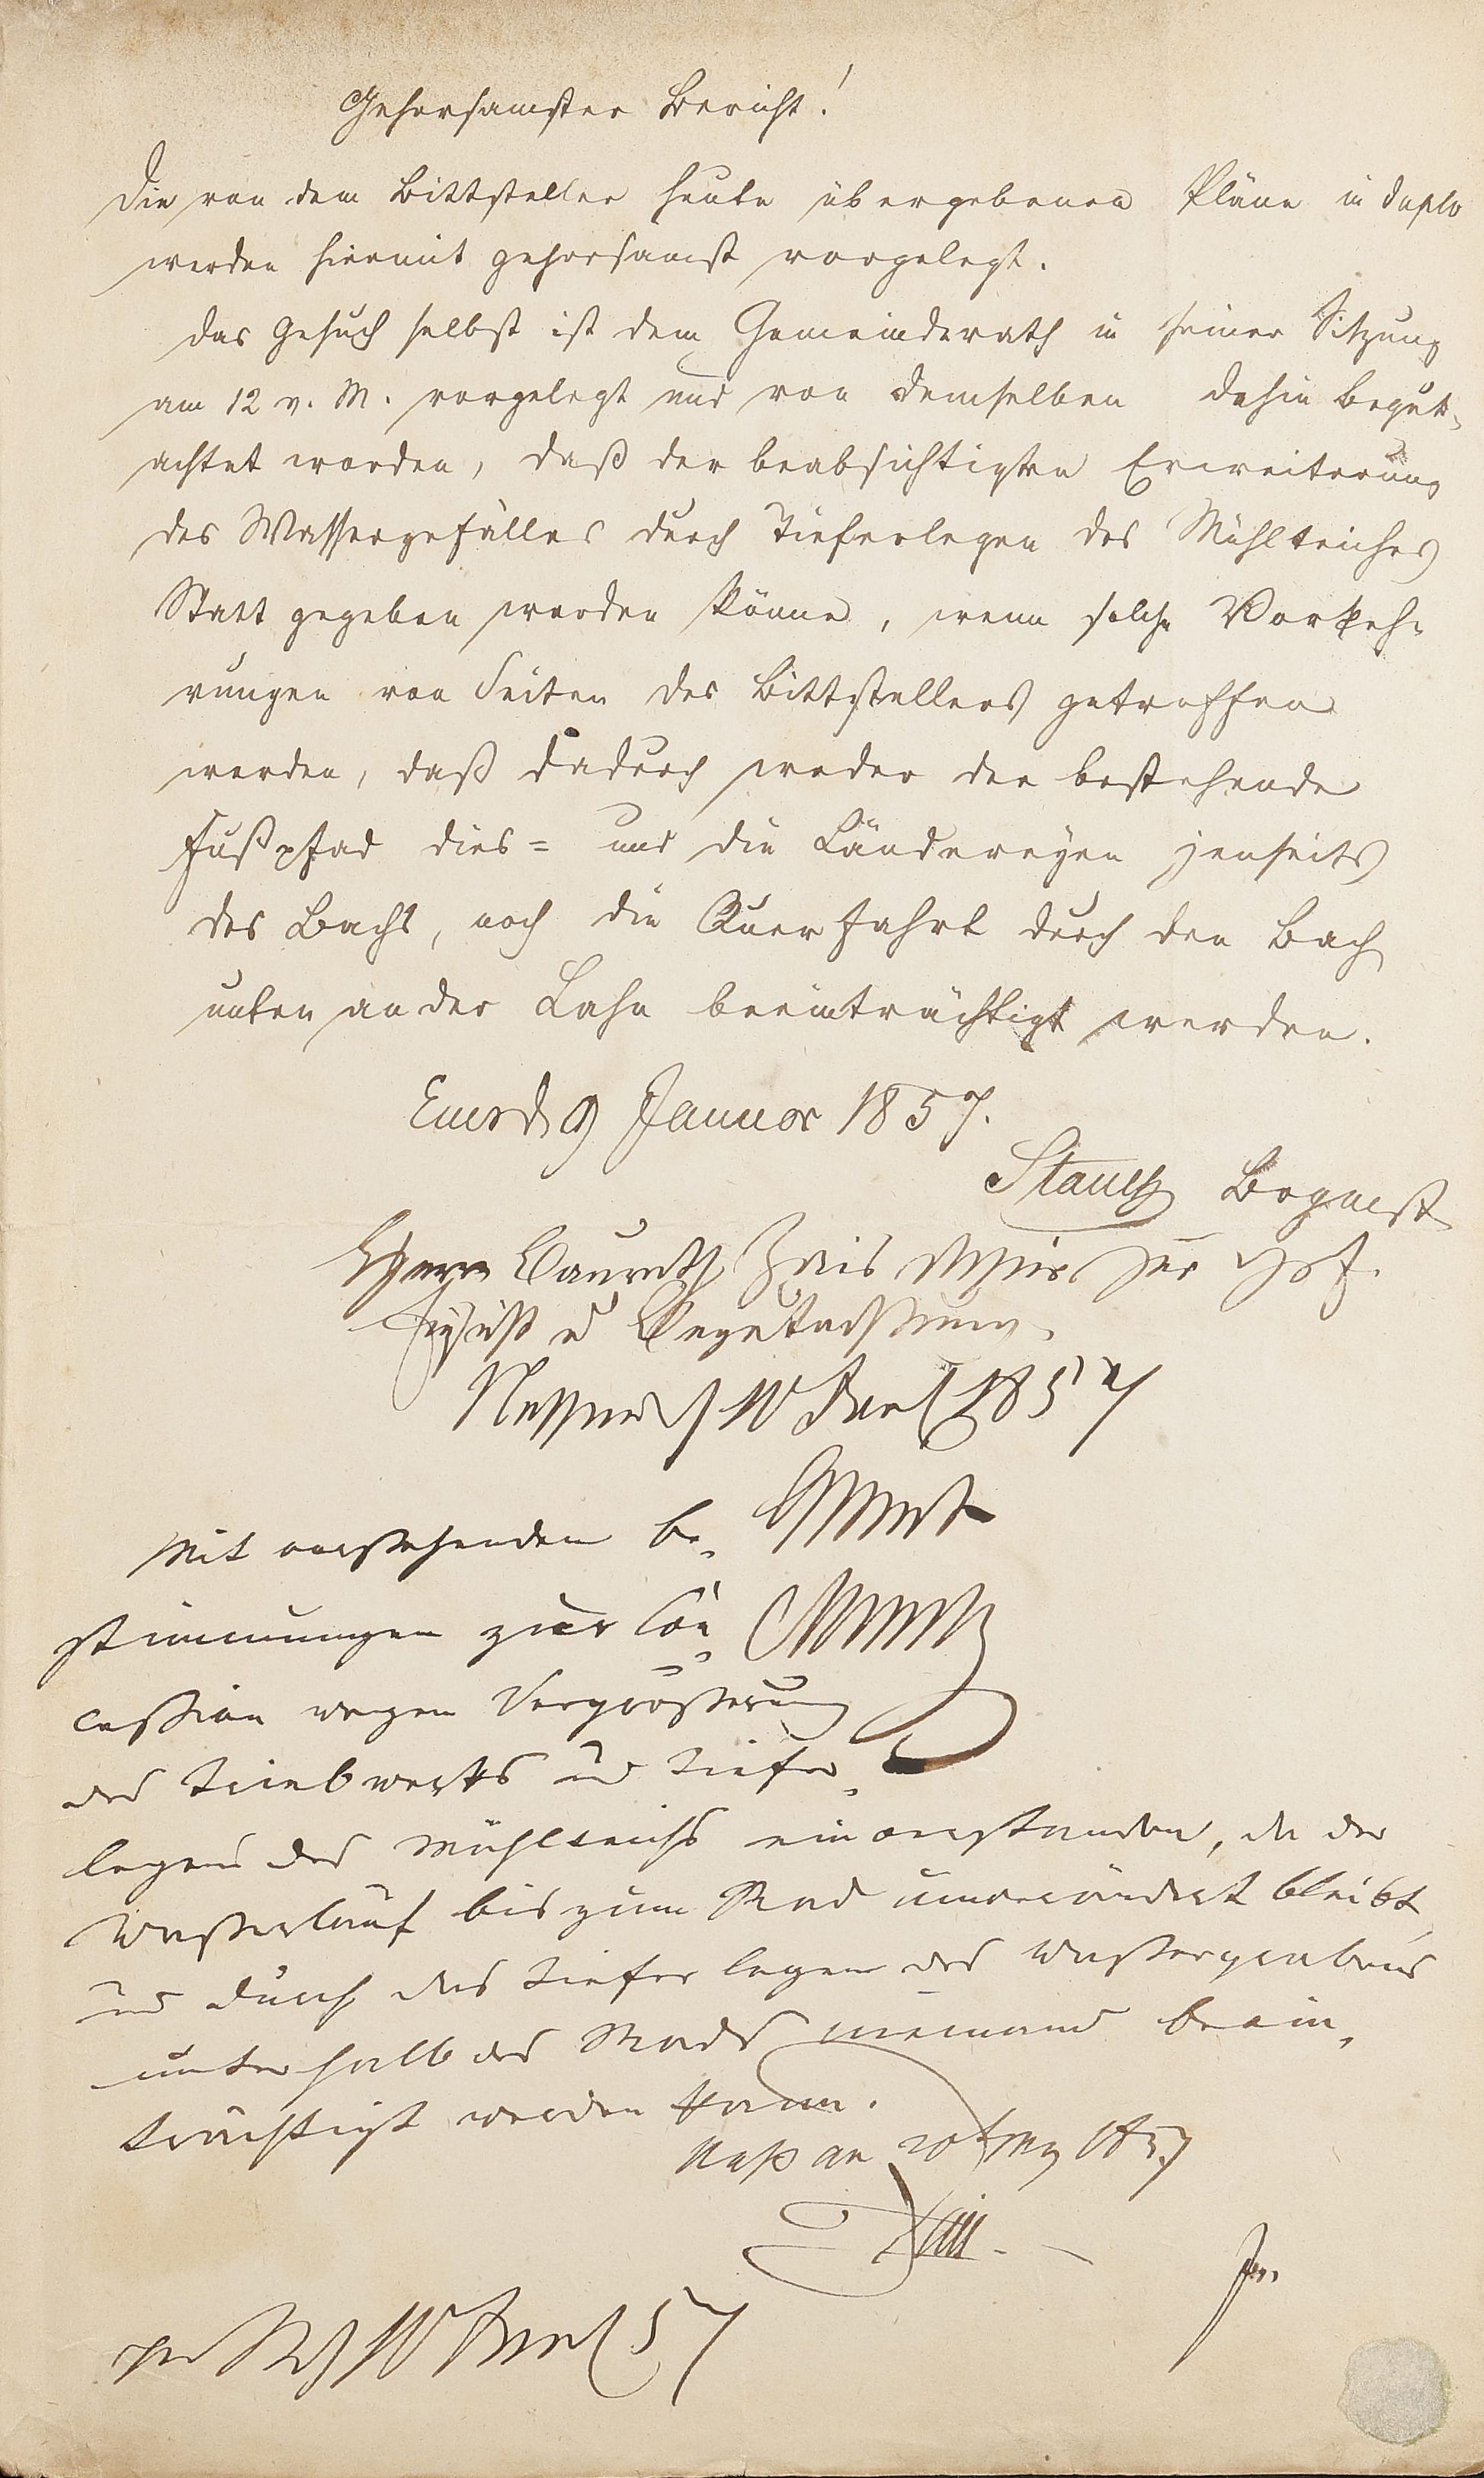 Gehorsamster Bericht!
Die von dem Bittsteller heute übergebenen Pläne in duplo
werden hiermit gehorsamst vorgelegt.
Das Gesuch selbst ist dem Gemeinderath in seiner Sitzung
am 12 v. M. vorgelegt und von demselben dahin begut-
achtet worden, daß der beabsichtigten Erweiterung
des Wassergefälles durch Tieferlegen des Mühlteiches
Statt gegeben werden könne, wenn solche Vorkeh-
rungen von Seiten des Bittstellers getroffen
werden, daß dadurch weder der bestehende
Fußpfad dies= und die Ländereyen jenseits
des Bachs, noch die Querfahrt durch den Bach
unten an der Lahn beeinträchtigt werden.
Ems d 9 Januar 1857.
Brgmst
Herrn Baurath zur
u Begutachtung.
Nassau 10 Jan 1857
Mit vorstehenden Be-
stimmungen zur Con-
cession wegen Vergrößerung
des Triebwerks und Tiefer-
legens des Mühlteichs einverstanden, da der
Wasserlauf bis zum Rad unverändert bleibt
und durch das Tiefer legen des Wassergrabens
unterhalb des Rads niemand beein-
trächtigt werden kann.
Nassau
10 Jan 57